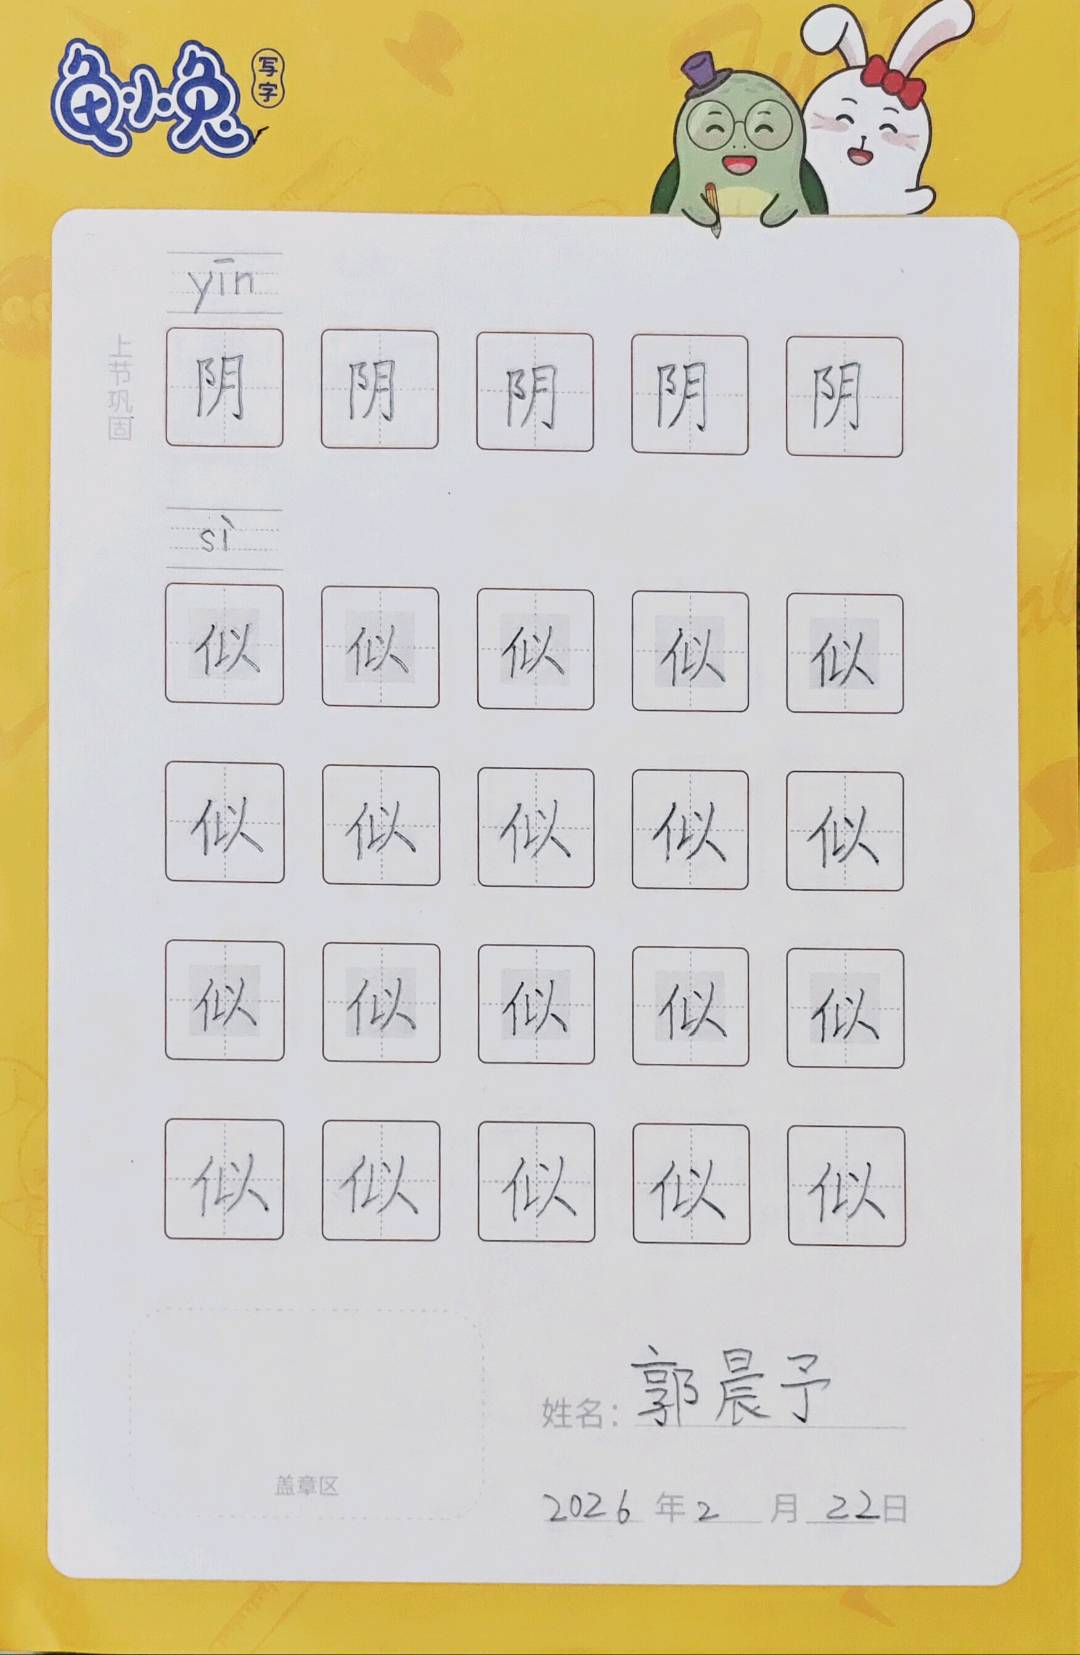 龟小兔 写字
yīn
上节巩固
阴 阴 阴 阴 阴
sì
似 似 似 似 似
似 似 似 似 似
似 似 似 似 似
似 似 似 似 似
姓名：郭晨予
盖章区
2026 年 2 月 22 日